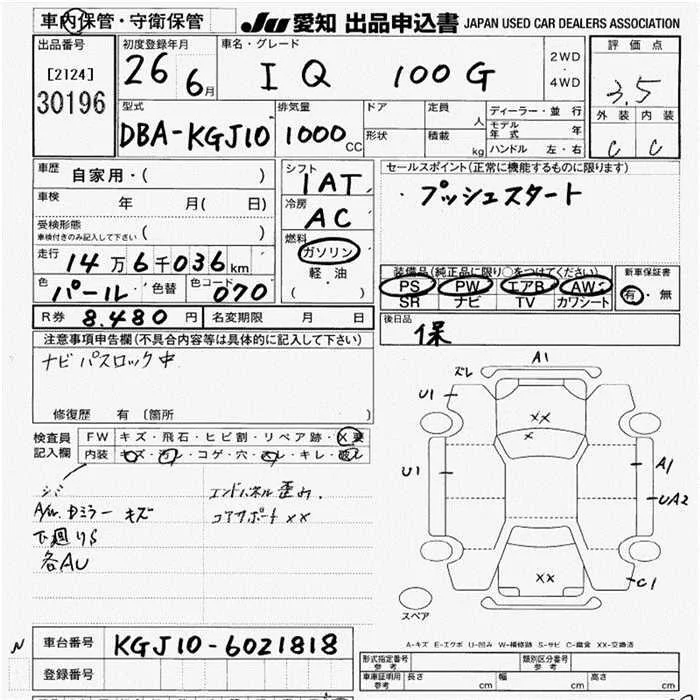 車内保管・守衛保管
JU 愛知 出品申込書 JAPAN USED CAR DEALERS ASSOCIATION
出品番号
[2124]
30196
初度登録年月
26 6月
車名・グレード
IQ 100G
2WD
・
4WD
評価点
3.5
外装 内装
C C
型式
DBA-KGJ10
排気量
1000 CC
ドア
形状
定員 人
積載 kg
ディーラー・並行
モデル年式 年
ハンドル 左・右
車歴
自家用・( )
車検 年 月( 日)
受検形態
車検付きのみ記入して下さい ( )
走行
14万6千036km
色 パール 色替 色コード 070
シフト
IAT
冷房
AC
燃料
ガソリン
軽・油
( )
セールスポイント(正常に機能するものに限ります)
・プッシュスタート
装備品(純正品に限り○をつけてください)
PS PW エアB AW
SR ナビ TV カワシート
新車保証書
有・無
R券 8.480円 名変期限 月 日
後日品
保
注意事項申告欄(不具合内容等は具体的に記入して下さい)
ナビパスロック中
修復歴 有〔箇所 〕
検査員
記入欄
FW キズ・飛石・ヒビ割・リペア跡・X要
内装 キズ・汚レ・コゲ・穴・スレ・キレ・破レ
シミ
A/W. Dミラー キズ
下廻りS
各AU
エンドパネル歪み.
コアサポート××
ズレ
A1
U1
××
×
U1
A1
UA2
××
C1
スペア
A-キズ E-エクボ U-凹み W-補修跡 S-サビ C-腐食 XX-交換済
N
車台番号 KGJ10-6021818
登録番号
形式指定番号
参考
類別区分番号
参考
車庫証明用
参考
長さ cm 幅 cm 高さ cm